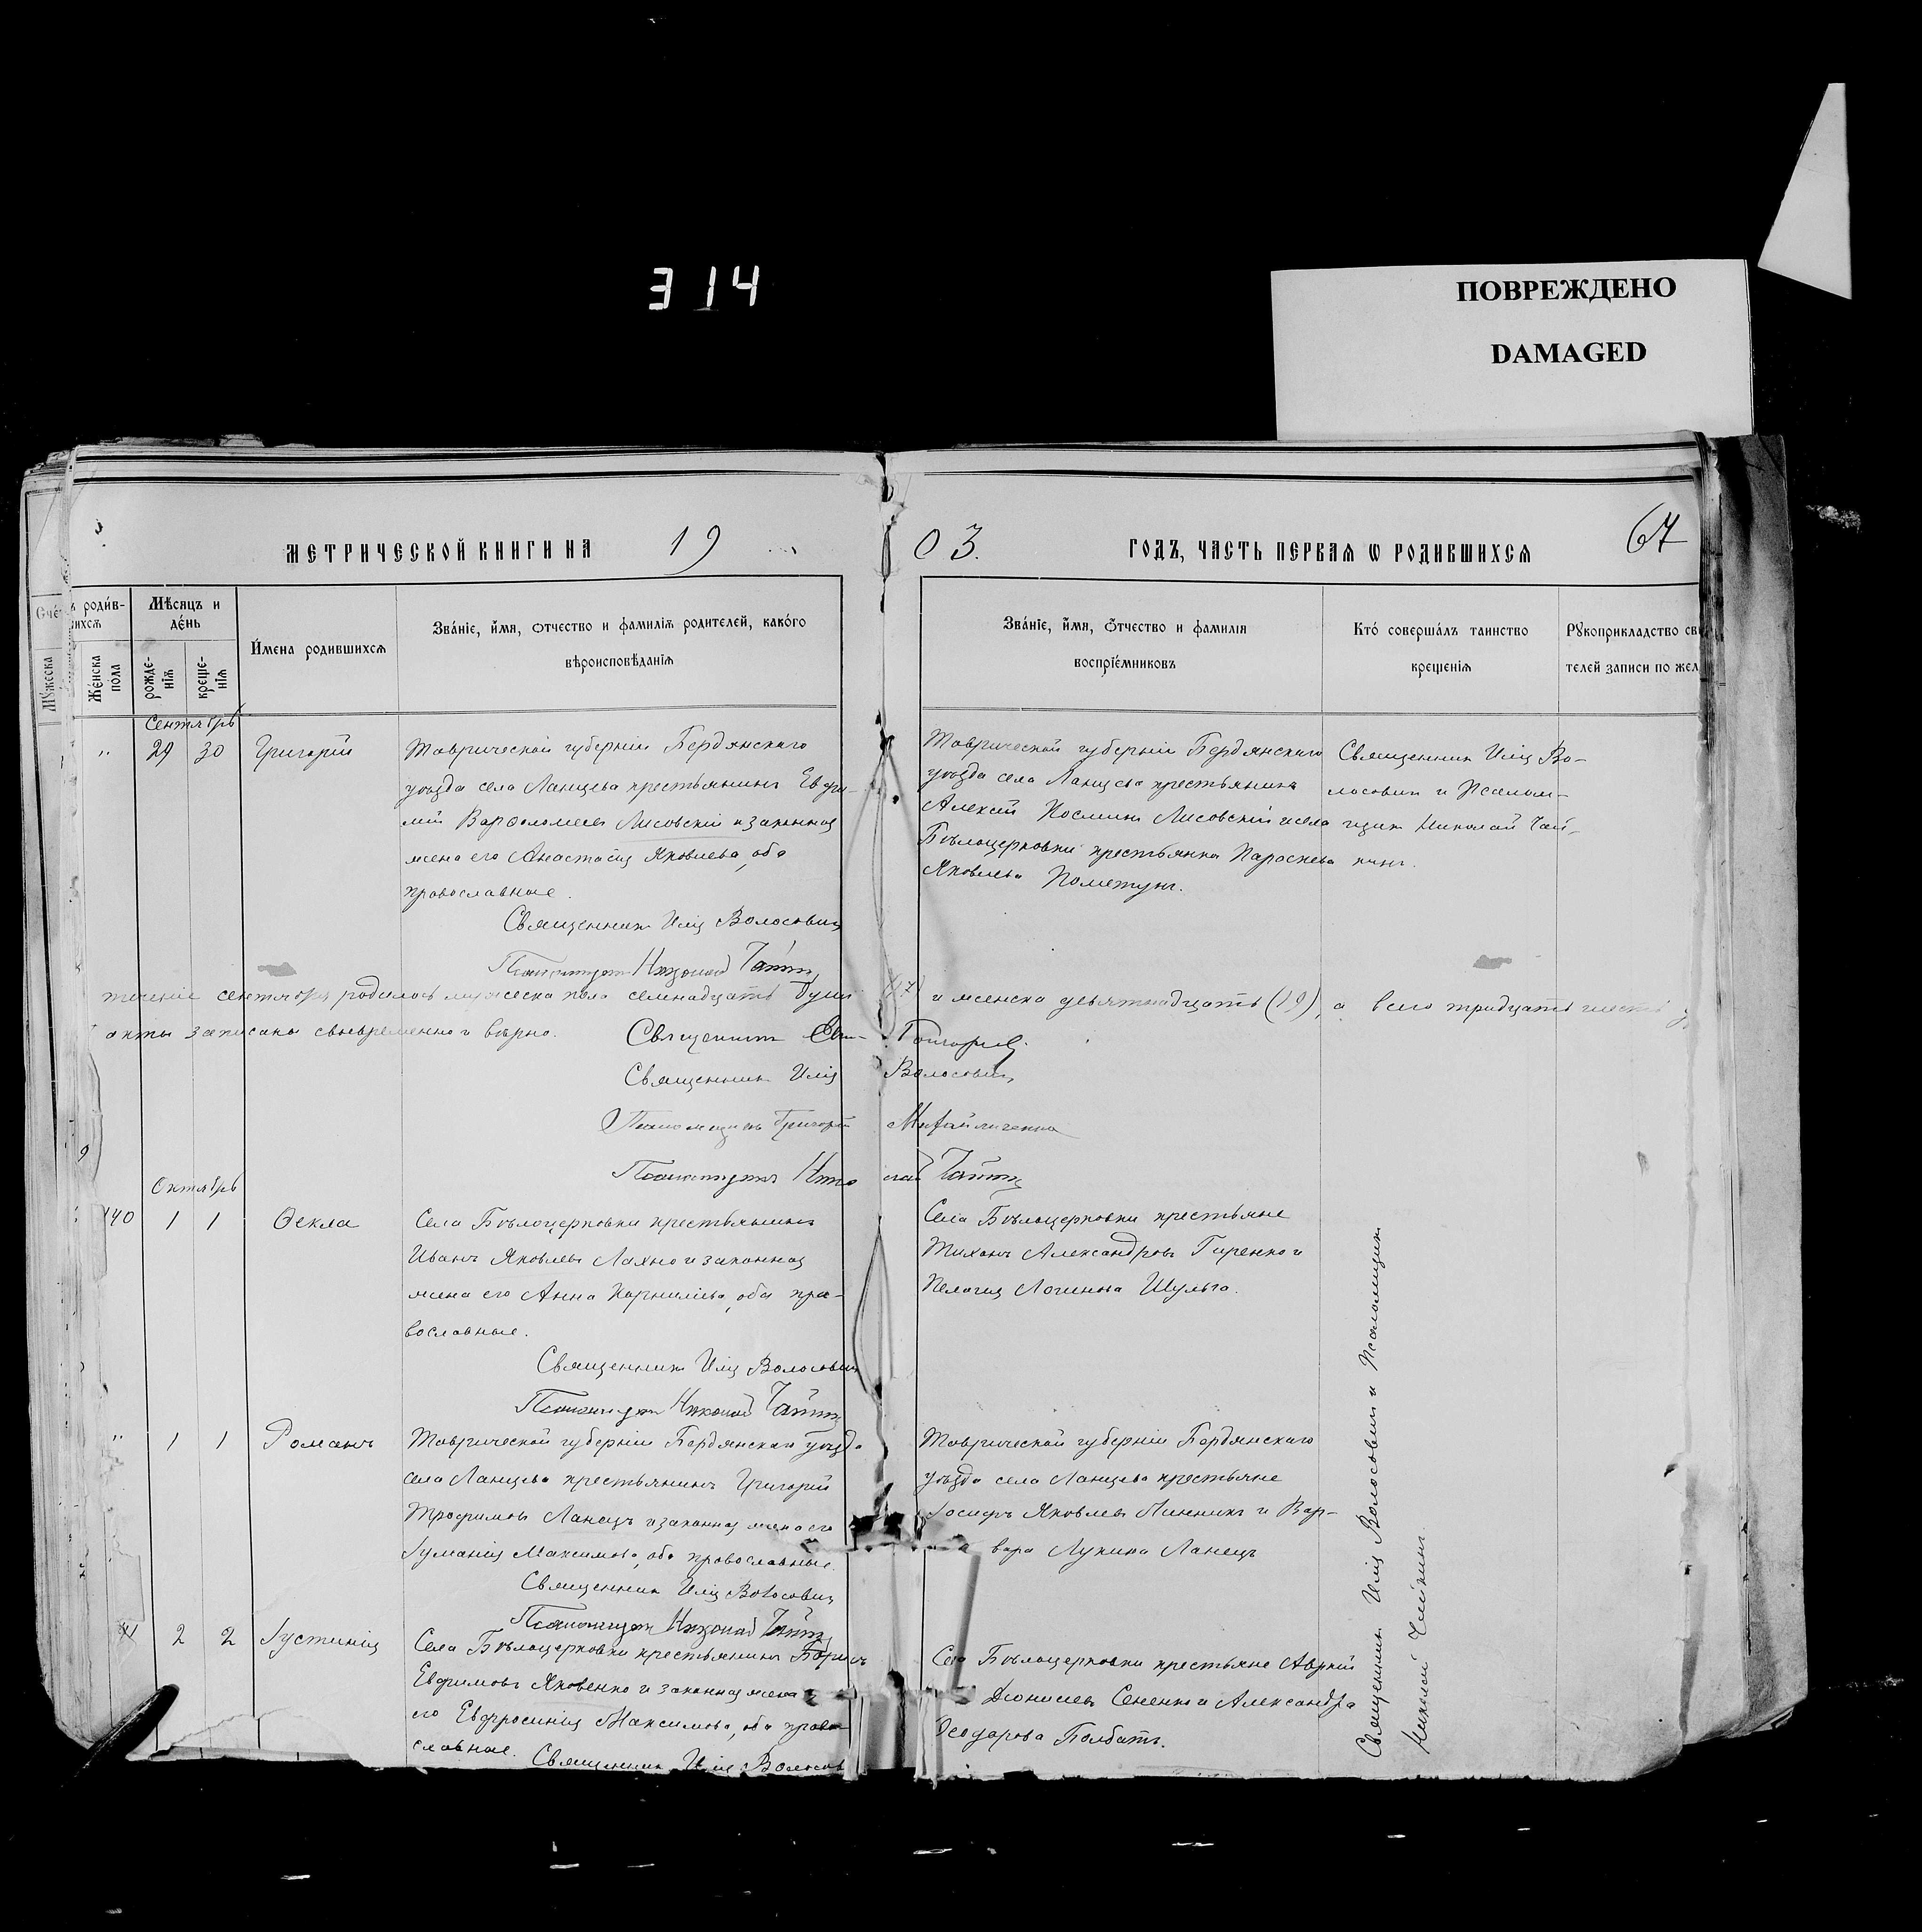 314
ПОВРЕЖДЕНО
DAMAGED
МЕТРИЧЕСКОЙ КНИГИ НА 19 03. ГОДЪ, ЧАСТЬ ПЕРВАЯ Ѡ РОДИВШИХСЯ
67
Мѣсяцъ и
де́нь
Же́нска
пола
рожде-
нія
креще-
нія
И́мена родившихсѧ
Зва́ніе, и́мя, ѻтчество и фамилія родителей, како́го
вѣроисповѣданія
Зва́ніе, и́мя, ѻтчество и фамилія
воспріе́мниковъ
Кто̀ соверша́лъ таинство
крещенія
Рꙋкоприкладство
телей записи по
Сентябрь
" 29 30 Григорій
Таврической губерніи Бердянскаго
уѣзда села Ланцева крестьянинъ Евфи-
мій Варѳоломеевъ Лисовскій и законная
жена его Анастасія Яковлева, оба
православные.
Священникъ Илія Волосовичъ
Псаломщикъ Николай
Таврической губерніи Бердянскаго
уѣзда села Ланцева крестьянинъ
Алексѣй Космынъ Лисовскій и села
Бѣлоцерковки крестьянка Параскева
Яковлева
Священникъ Илія Во-
лосовичъ и Псалом-
щикъ Николай
течение сентября родилось мужеска пола семнадцать душъ (17) и женска девятнадцать (19), а всего тридцать шесть
акты записаны своевременно и вѣрно.
Священникъ
Священникъ Илія Волосовичъ
Псаломщикъ Григорій
Псаломщикъ Николай
Октябрь
140 1 1 Ѳекла
Села Бѣлоцерковки крестьянинъ
Иванъ Яковлевъ Ляхно и законная
жена его Анна Корнилиева, оба пра-
вославные.
Священникъ Илія Волосовичъ
Псаломщикъ Николай
Села Бѣлоцерковки крестьяне
Тихонъ Александровъ Гиренко и
Пелагия Логинова Шульга.
" 1 1 Романъ
Таврической губерніи Бердянскаго уѣзда
села Ланцева крестьянинъ Григорій
Трофимовъ Ланецъ и законная жена его
Іуліанія Максимова, оба православные.
Священникъ Илія Волосовичъ
Псаломщикъ Николай
Таврической губерніи Бердянскаго
уѣзда села Ланцева крестьяне
Іосифъ Яковлевъ Линникъ и Вар-
вара Лукина Ланецъ
2 2 Іустинія
Села Бѣлоцерковки крестьянинъ Борисъ
Евфимовъ Яковенко и законная жена
его Евфросинія Максимова, оба право-
славные.
Священникъ Илія
Села Бѣлоцерковки крестьяне
Діонисіевъ Сененко и Александра
Ѳеодорова
Священникъ Илія Волосовичъ и Псаломщикъ
Николай